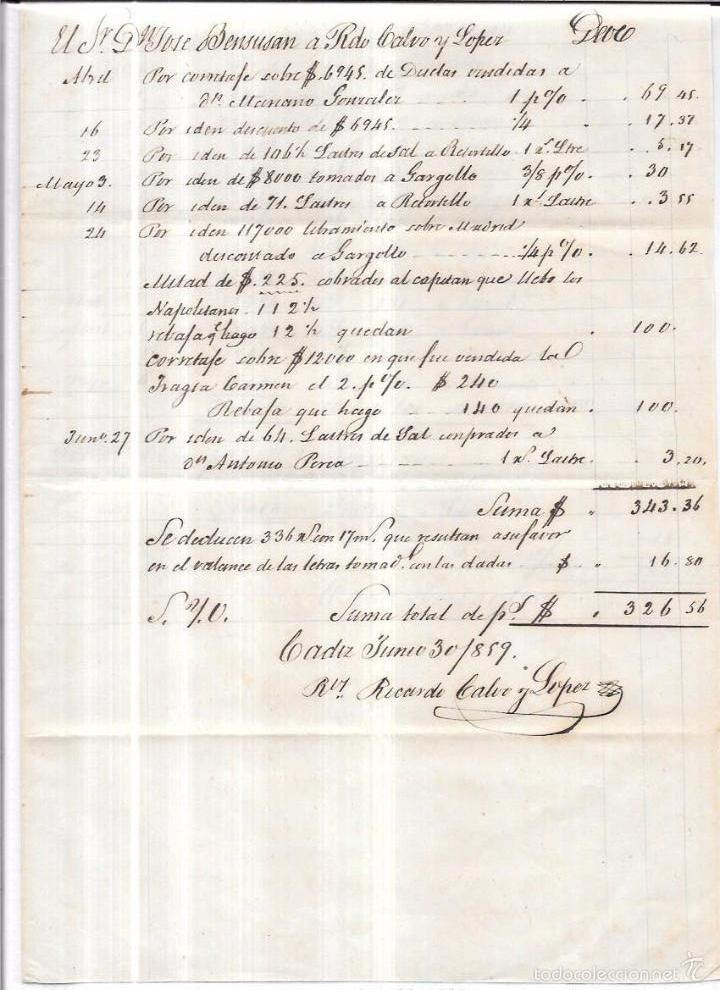 El Sr. Dn Jose Bensusan a Rdo Calvo y Lopez Deve
Abril Por corretaje sobre $.6945. de Duelas vendidas a
dn. Mariano Gonzalez 1 p% . 69 45.
16 Por iden descuento de $6945. 1/4 . 17.37
23 Por iden de 106½ Lastres de Sal a Retortillo 1 rl. Ltre . 5.17
Mayo 3. Por iden de $8000 tomados a Gargollo 3/8 p%. . 30
14 Por iden de 71. Lastres a Retortillo 1 rl. Lastre . 3 55
24 Por iden 117000 libramiento sobre Madrid
descontado a Gargollo 1/4 p% . 14.62
Mitad de $.225. cobrados al capitan que llebo los
Napolitanos. 112½
rebaja q. hago 12½ quedan . 100.
Corretaje sobre $12000 en que fue vendida la
Fragta Carmen el 2. p%. $240
Rebaja que hago 140 quedan . 100.
Jun. 27 Por iden de 64. Lastres de Sal comprados a
dn Antonio Perea 1 rl. Lastre . 3,20.
Suma $ " 343.36
Se deducen 336 rs. con 17 ms. que resultan a su favor
en el valance de las letras tomads. con las dadas $ " 16.80
S. Y/O. Suma total de ps. $ . 326 56
Cadiz Junio 30/859.
Ricardo Calvo y Lopez
todocoleccion.net